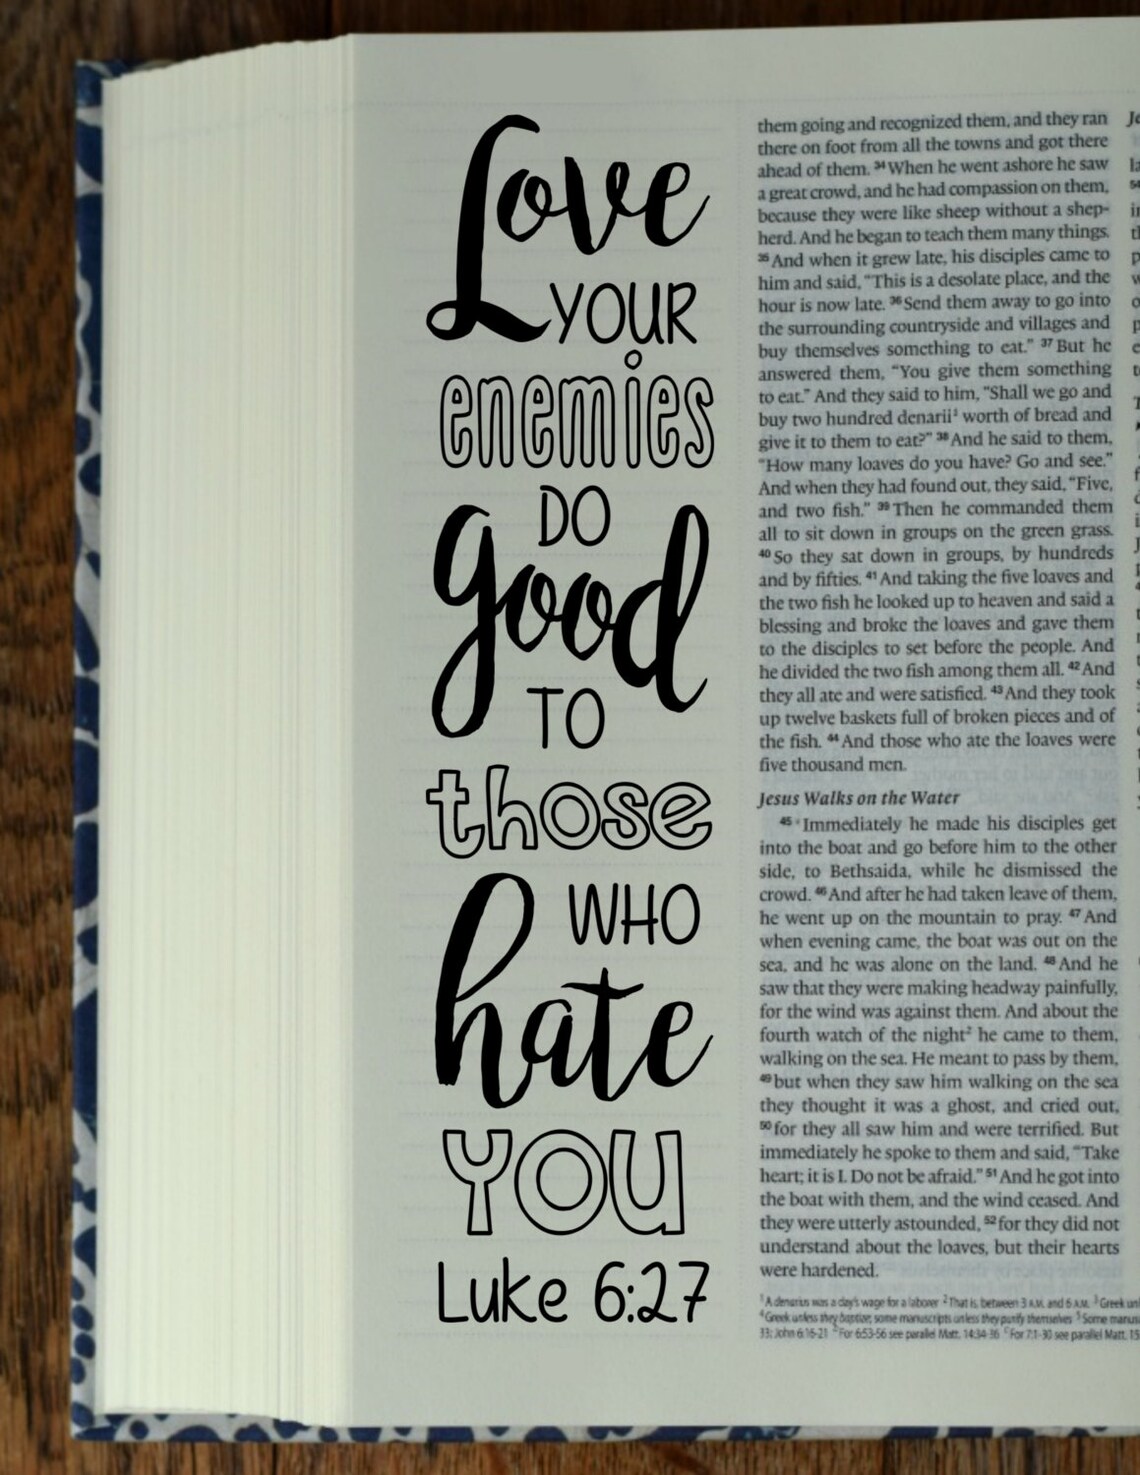 Love
YOUR
enemies
DO
good
TO
those
WHO
hate
YOU
Luke 6:27
them going and recognized them, and they ran
there on foot from all the towns and got there
ahead of them. 34 When he went ashore he saw
a great crowd, and he had compassion on them,
because they were like sheep without a shep-
herd. And he began to teach them many things.
35 And when it grew late, his disciples came to
him and said, “This is a desolate place, and the
hour is now late. 36 Send them away to go into
the surrounding countryside and villages and
buy themselves something to eat.” 37 But he
answered them, “You give them something
to eat.” And they said to him, “Shall we go and
buy two hundred denarii¹ worth of bread and
give it to them to eat?” 38 And he said to them,
“How many loaves do you have? Go and see.”
And when they had found out, they said, “Five,
and two fish.” 39 Then he commanded them
all to sit down in groups on the green grass.
40 So they sat down in groups, by hundreds
and by fifties. 41 And taking the five loaves and
the two fish he looked up to heaven and said a
blessing and broke the loaves and gave them
to the disciples to set before the people. And
he divided the two fish among them all. 42 And
they all ate and were satisfied. 43 And they took
up twelve baskets full of broken pieces and of
the fish. 44 And those who ate the loaves were
five thousand men.
Jesus Walks on the Water
45 Immediately he made his disciples get
into the boat and go before him to the other
side, to Bethsaida, while he dismissed the
crowd. 46 And after he had taken leave of them,
he went up on the mountain to pray. 47 And
when evening came, the boat was out on the
sea, and he was alone on the land. 48 And he
saw that they were making headway painfully,
for the wind was against them. And about the
fourth watch of the night² he came to them,
walking on the sea. He meant to pass by them,
49 but when they saw him walking on the sea
they thought it was a ghost, and cried out,
50 for they all saw him and were terrified. But
immediately he spoke to them and said, “Take
heart; it is I. Do not be afraid.” 51 And he got into
the boat with them, and the wind ceased. And
they were utterly astounded, 52 for they did not
understand about the loaves, but their hearts
were hardened.
1 A denarius was a day's wage for a laborer 2 That is, between 3 A.M. and 6 A.M. 3 Greek
4 Greek unless they baptize; some manuscripts unless they purify themselves 5 Some
33; John 6:16-21 For 6:53-56 see parallel Matt. 14:34-36 For 7:1-30 see parallel Matt. 15